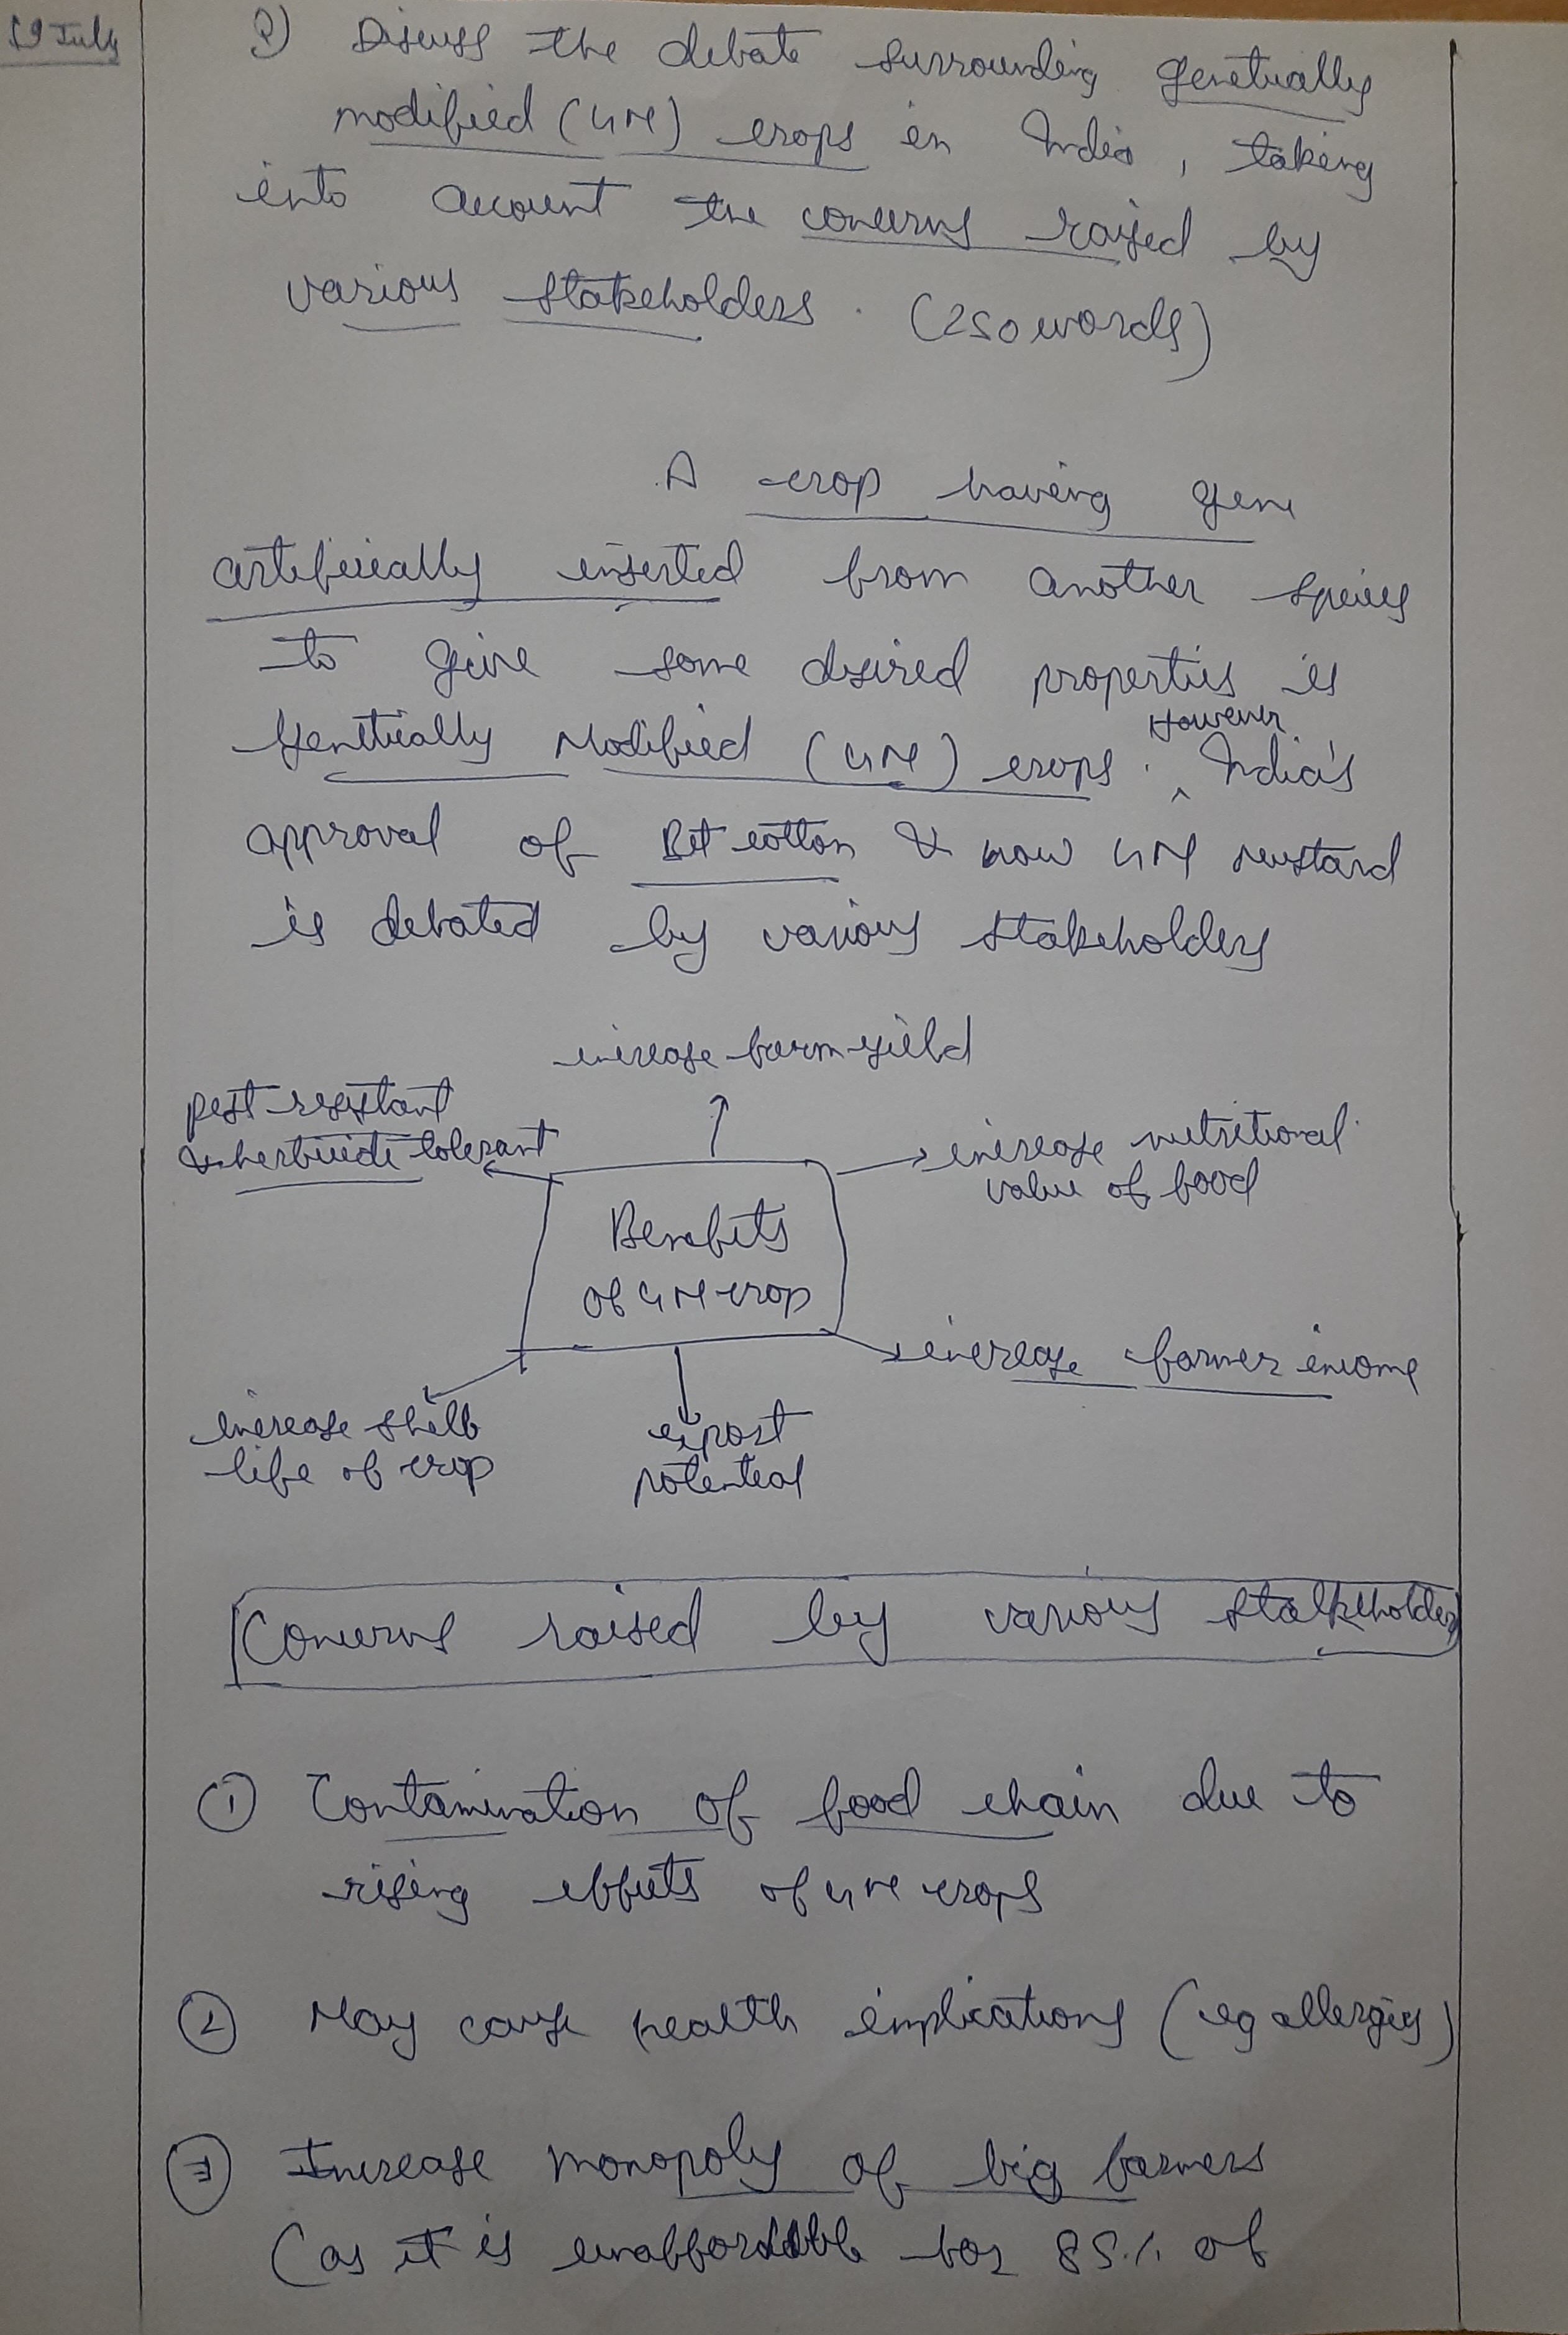 19 July
Q) Discuss the debate surrounding genetically
modified (GM) crops in India, taking
into account the concerns raised by
various stakeholders. (250 words)
A crop having gene
artificially inserted from another species
to give some desired properties is
Genetically Modified (GM) crops. However, India's
approval of Bt cotton & now GM mustard
is debated by various stakeholders
increase farm yield
pest resistant
& herbicide tolerant
increase nutritional
value of food
Benefits
of GM crop
increase farmer income
increase shelf
life of crop
export
potential
Concerns raised by various stakeholders
① Contamination of food chain due to
rising effects of GM crops
② May cause health implications (eg allergies)
③ Increase monopoly of big farmers
(as it is unaffordable for 85% of